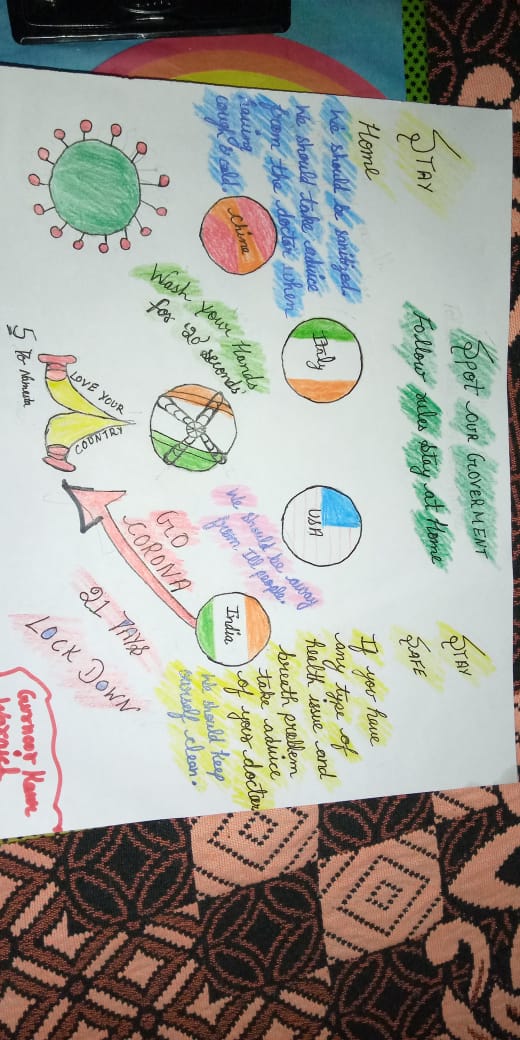 STAY
Home
SPOT OUR GOVERMENT
Follow rules stay at Home
STAY
SAFE
We should be sanitized.
We should take advice
from the doctor when
having
cough & cold
If you have
any type of
health issue and
breath problem
take advice
of your doctor
We should keep
ourself clean.
China
Italy
USA
India
We should be away
from Ill people.
Wash your Hands
for '20 seconds'
GO
CORONA
LOVE YOUR
COUNTRY
21 DAYS
LOCK DOWN
Gurnoor Kaur